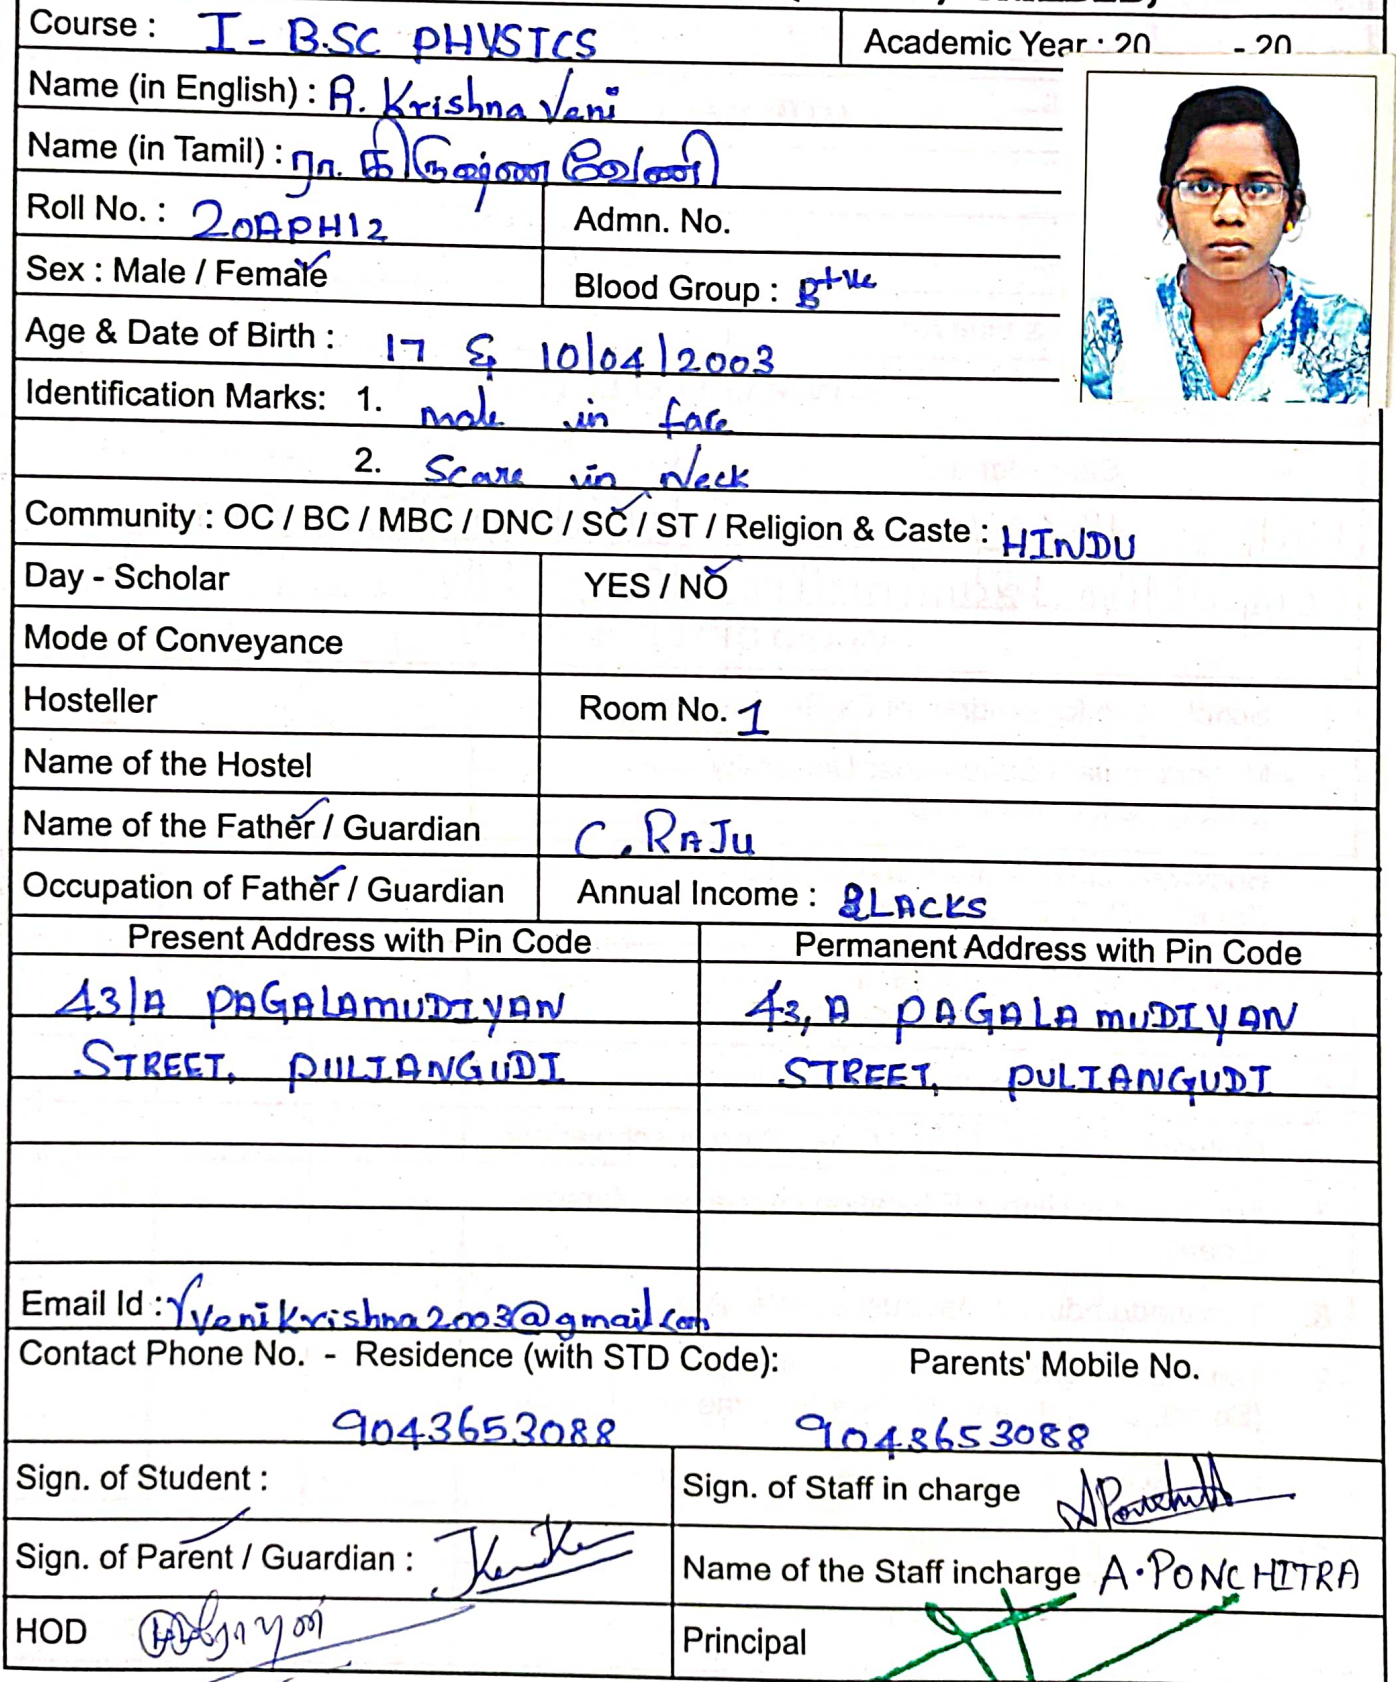 Course : I - B.SC PHYSICS Academic Year : 20 - 20
Name (in English) : R. Krishna Veni
Name (in Tamil) : ரா. கிருஷ்ண வேணி
Roll No. : 20APH12 Admn. No.
Sex : Male / Female Blood Group : B+ve
Age & Date of Birth : 17 & 10/04/2003
Identification Marks: 1. mole in face
2. Scare in Neck
Community : OC / BC / MBC / DNC / SC / ST / Religion & Caste : HINDU
Day - Scholar YES / NO
Mode of Conveyance
Hosteller Room No. 1
Name of the Hostel
Name of the Father / Guardian C. RAJU
Occupation of Father / Guardian Annual Income : LACKS
Present Address with Pin Code Permanent Address with Pin Code
43/A PAGALAMUDIYAN 43, A PAGALAMUDIYAN
STREET, PULIANGUDI STREET, PULIANGUDI
Email Id : rvenikrishna2003@gmail.com
Contact Phone No. - Residence (with STD Code): Parents' Mobile No.
9043653088 9043653088
Sign. of Student : Sign. of Staff in charge
Sign. of Parent / Guardian : Name of the Staff incharge A. PONCHITRA
HOD Principal